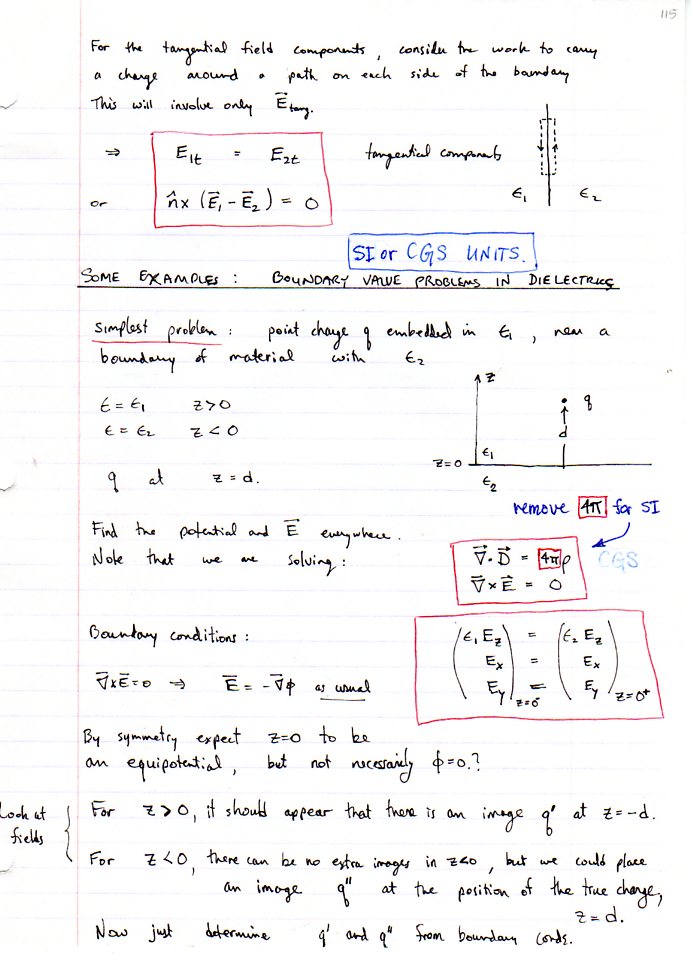 115
For the tangential field components, consider the work to carry
a charge around a path on each side of the boundary
This will involve only E⃗tang.
⇒ E1t = E2t tangential components
or n̂ × (E⃗1 - E⃗2) = 0
ϵ1 ϵ2
SI or CGS UNITS.
SOME EXAMPLES : BOUNDARY VALUE PROBLEMS IN DIELECTRICS
Simplest problem : point charge q embedded in ϵ1, near a
boundary of material with ϵ2
ϵ = ϵ1 z > 0
ϵ = ϵ2 z < 0
q at z = d.
z
q
d
z=0 ϵ1
ϵ2
remove 4π for SI
Find the potential and E⃗ everywhere.
Note that we are solving :
∇⃗·D⃗ = 4πρ CGS
∇⃗×E⃗ = 0
Boundary conditions :
(ϵ1 Ez) = (ϵ2 Ez)
Ex = Ex
Ey z=0- = Ey z=0+
∇⃗×E⃗=0 ⇒ E⃗ = -∇⃗ϕ as usual
By symmetry expect z=0 to be
an equipotential, but not necessarily ϕ=0.?
Look at
fields
For z > 0, it should appear that there is an image q' at z=-d.
For z < 0, there can be no extra images in z<0, but we could place
an image q" at the position of the true charge,
z = d.
Now just determine q' and q" from boundary conds.